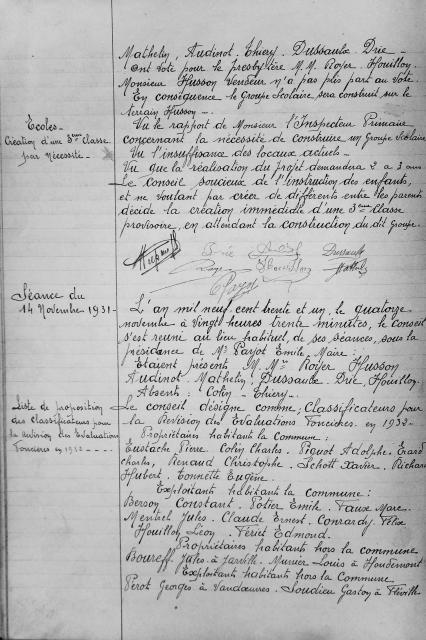 Mathelin, Audinot. Thiery. Dussaulx. Drie -
Ont voté pour le presbytère M.M. Royer. Houillon.
Monsieur Husson Vendeur n'a pas pris part au vote.
En conséquence le Groupe Scolaire sera construit sur le
terrain Husson -.
Écoles -
Création d'une 3ème Classe
par nécessité -
Vu le rapport de Monsieur l'Inspecteur Primaire
concernant la nécessité de construire un Groupe Scolaire
Vu l'insuffisance des locaux actuels -
Vu que la réalisation du projet demandera 2 à 3 ans
Le Conseil soucieux de l'instruction des enfants,
et ne voulant par créer de différents entre les parents
décide la création immédiate d'une 3ème Classe
provisoire, en attendant la construction du dit Groupe.
Drie
Dussaulx
Royer
Mathelin
Parjot
Séance du
14 Novembre 1931 -
L'an mil neuf cent trente et un, le quatorze
novembre à vingt heures trente minutes, le Conseil
s'est réuni au lieu habituel, de ses séances, sous la
présidence de Mr Parjot Emile, Maire.
Étaient présents M. Mrs Royer Husson
Audinot. Mathelin, Dussaulx. Drie, Houillon.
Absents : Colin - Thiery -.
Liste de proposition
des Classificateurs pour
la Revision des Evaluations
Foncières en 1932 - - - -
Le conseil désigne comme, Classificateurs pour
la Revision des Evaluations Foncières. en 1932 -
Propriétaires habitants la Commune :
Eustache Pierre. Colin Charles. Piguot Adolphe. Erard
Charles, Renaud Christophe. Schott Xavier. Richard
Hubert. Tonnette Eugène.
Exploitants habitants la commune :
Bersoy Constant. Potier Emile. Faux Marc.
Menbrel Jules. Claude Ernest. Conrardy Félix
Houillon Léon. Feriet Edmond.
Propriétaires habitants hors la commune
Boureff Jules à Jarville. Munier Louis à Houdemont
Exploitants habitants hors la Commune
Perot Georges à Vandoeuvres. Soudieu Gaston à Fléville.